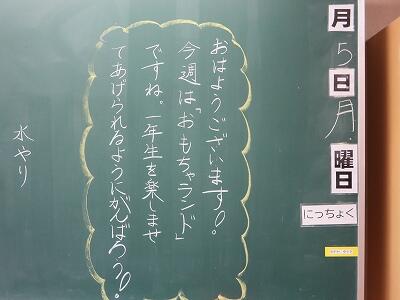 月
5
日
月
曜
日
にっちょく
おはようございます!!
今週は「おもちゃランド」
ですね。一年生を楽しませ
てあげられるようにがんばろう!!
水やり